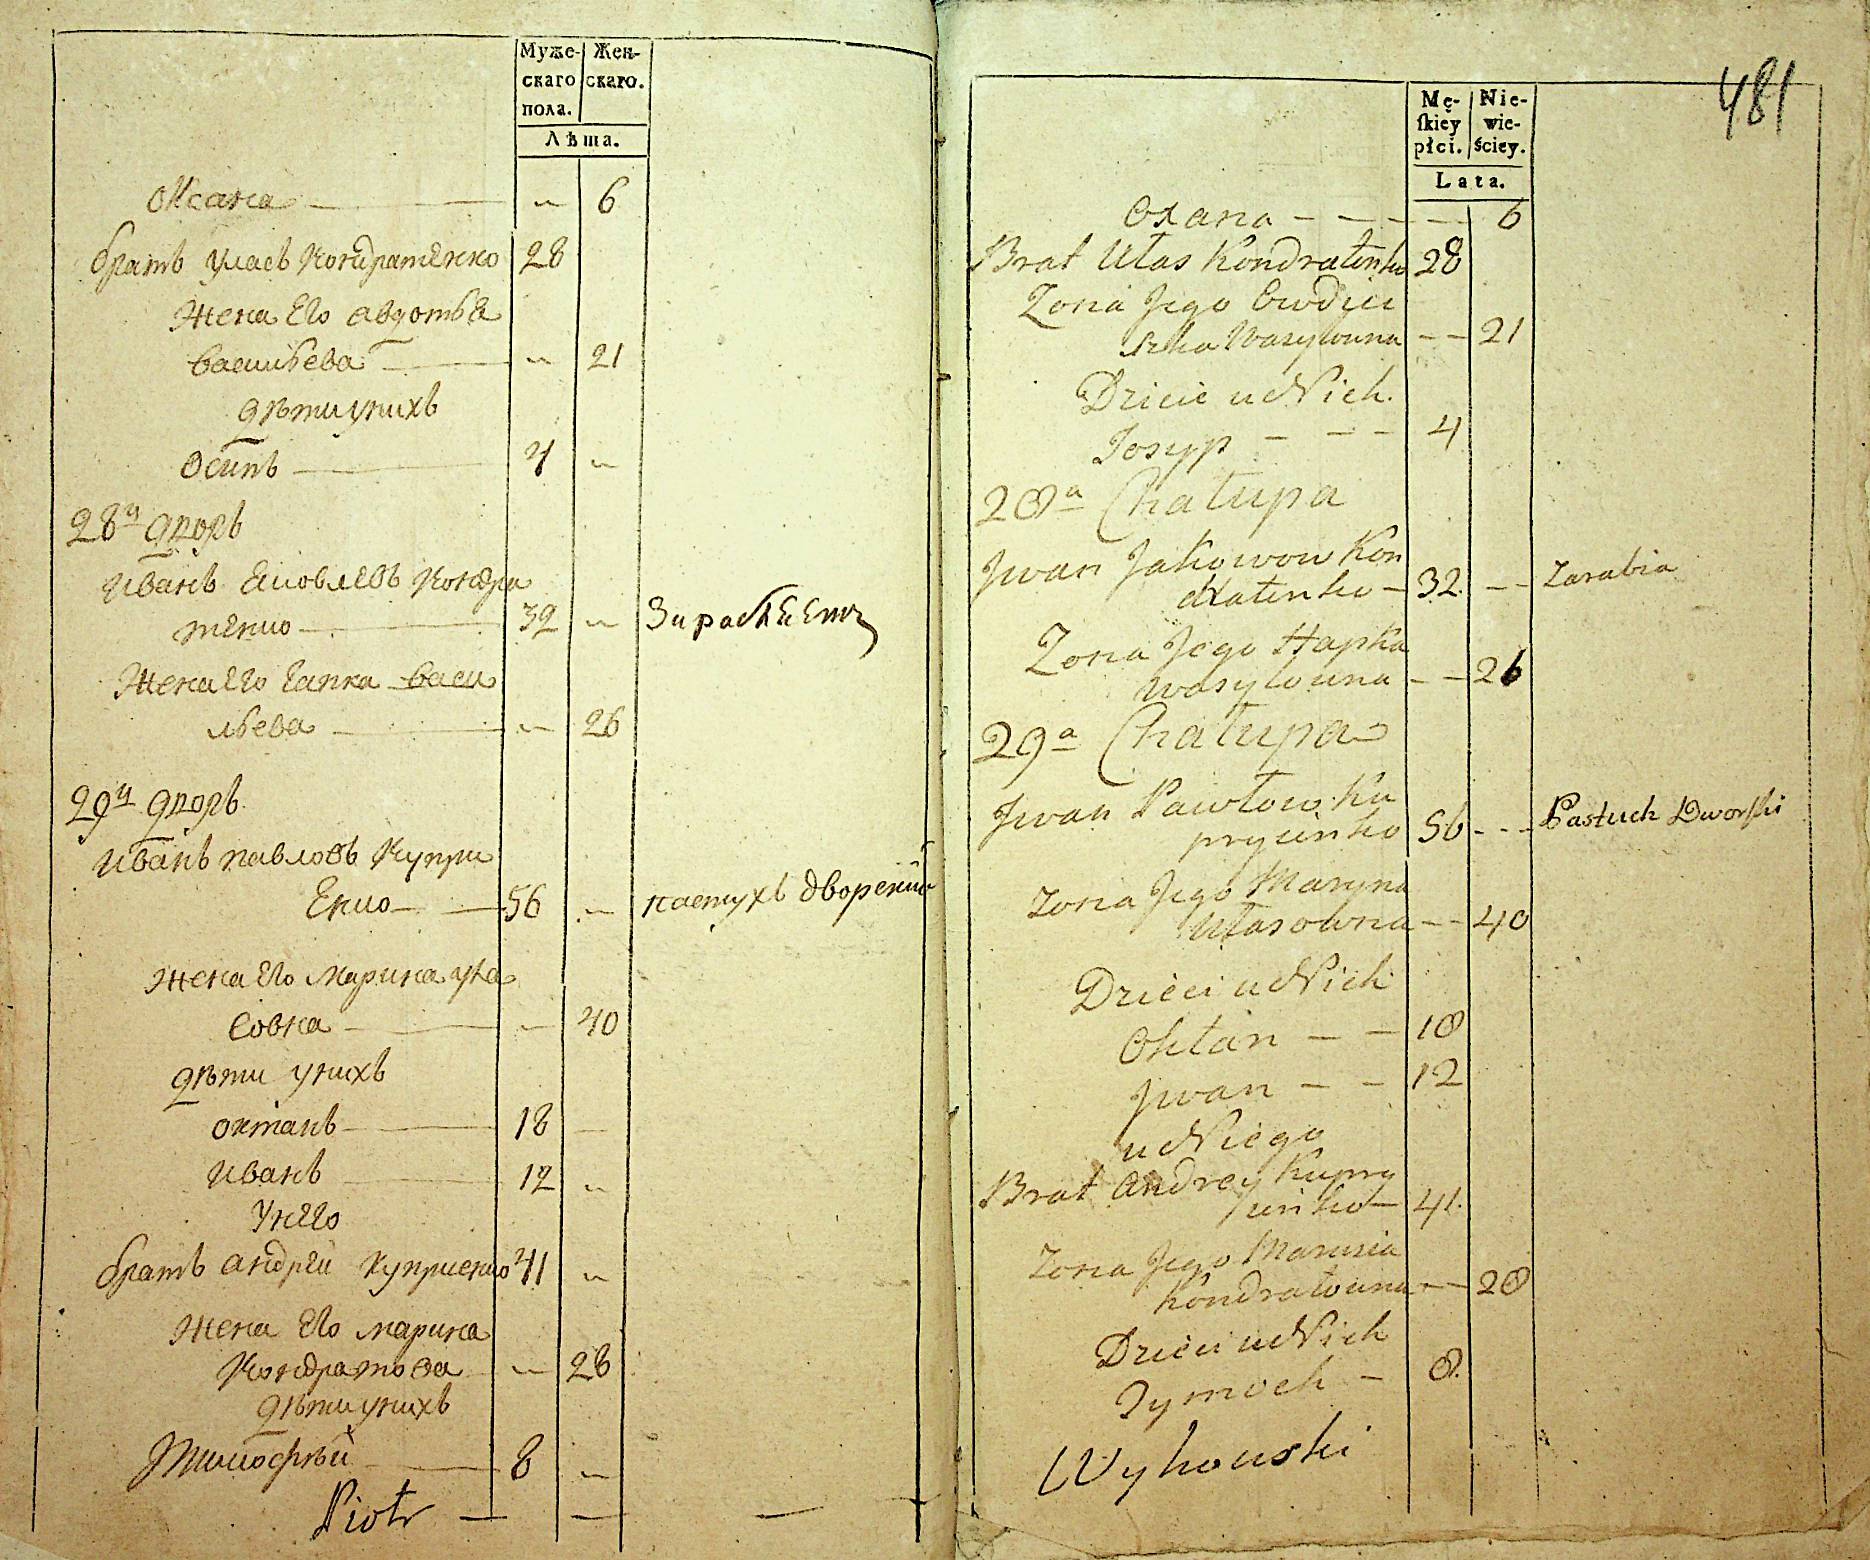 Муже-
скаго
пола.
Жен-
скаго.
Лѣта.
Оксана — " 6
братъ Уласъ Кондратенко 28
Жена Его авдотья
васильева — " 21
дѣти унихъ
Осипъ — 4 "
28й дворъ
Иванъ Яковлевъ Кондра
тенко — 32 "
Жена Его Гапка васи
льева — " 26
29й дворъ
Иванъ павловъ Купри
Енко — 56 — пастухъ дворскій
Жена Его Марина ула
совна — — 40
дѣти унихъ
октанъ — 18 —
Иванъ — 12 "
Унего
братъ андрей Куприенко 41 "
Жена Его марина
Кондратова — " 28
дѣти унихъ
Тимофѣй — 8 "
Piotr — — —
481
Mę-
skiey
płci.
Nie-
wie-
ściey.
Lata.
Oxana — — — — 6
Brat Ułas Kondratenko 28
Zona Jego Ewdoci
szka Wasylowna — — 21
Dzieci u Nich.
Josyp — — — 4
28a Chałupa
Jwan Jakowow Kon
dratenko — 32 — — Zarabia
Zona Jego Hapka
Wasylowna — — 26
29a Chałupa
Jwan Pawłow Ku
pryienko 56 - - - Pastuch Dworski
Zona Jego Maryna
Ułasowna — — 40
Dzieci u Nich
Oktan — — 18
Jwan — — 12
u Niego
Brat Andrey Kupry
jenko — 41.
Zona Jego Marusia
Kondratowna — — 28
Dzieci u Nich
Tymoch — 8.
Wyhowski